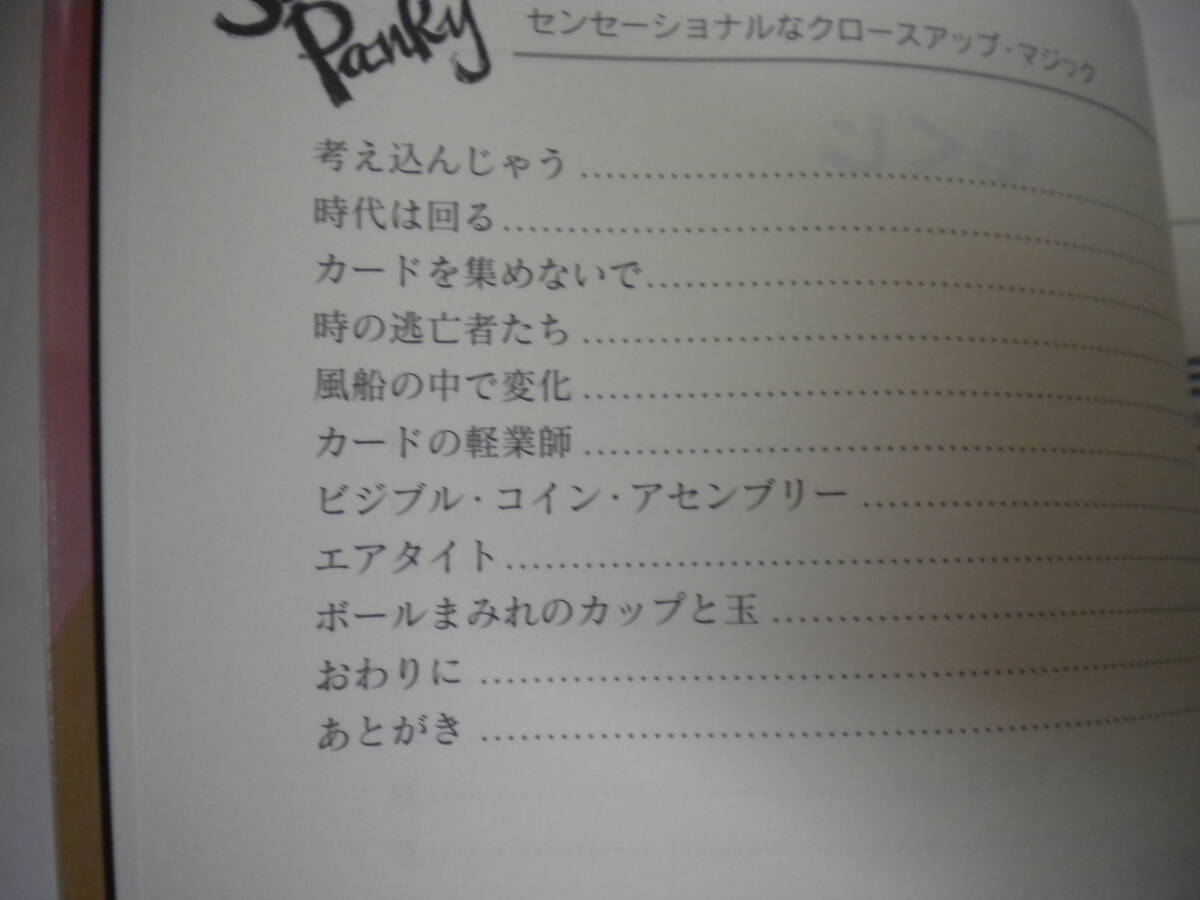 Panky
センセーショナルなクロースアップ・マジック
考え込んじゃう
時代は回る
カードを集めないで
時の逃亡者たち
風船の中で変化
カードの軽業師
ビジブル・コイン・アセンブリー
エアタイト
ボールまみれのカップと玉
おわりに
あとがき